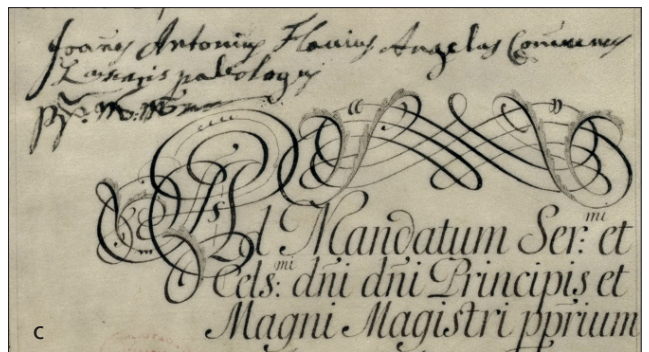 Joanes Antonius Flavius Angelus Comnenus
Lascaris paleologus
Ad Mandatum Ser:mi et
Cels:mi dni dni Principis et
Magni Magistri pprium
C